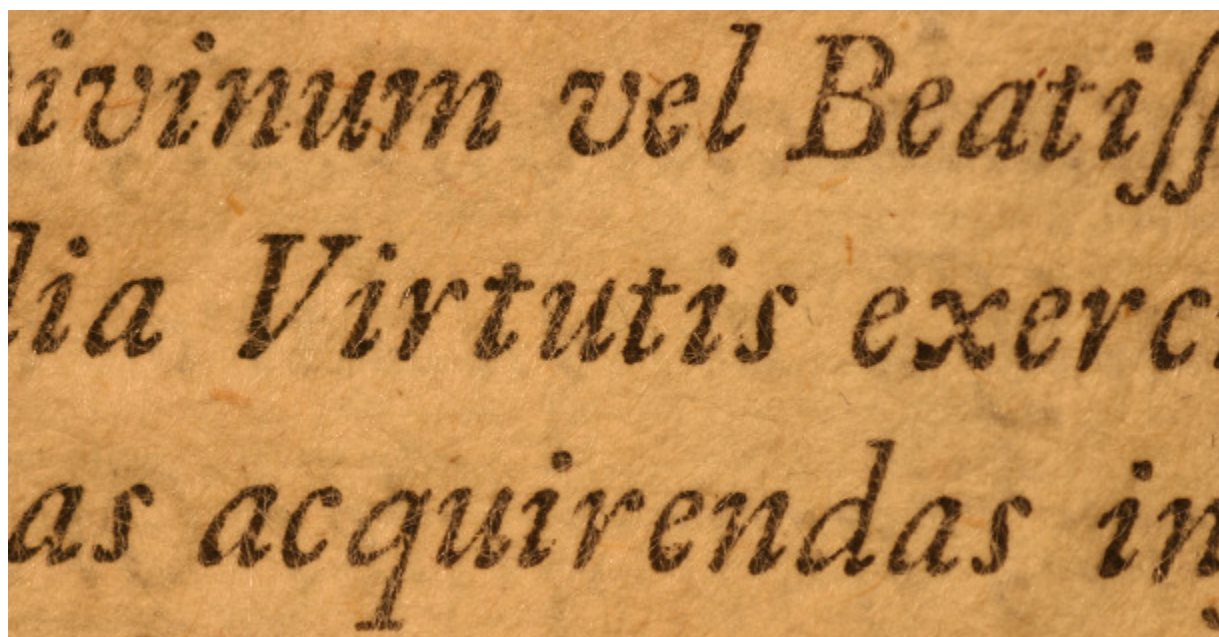 ivinum vel Beatiſſ
lia Virtutis exerc
as acquirendas in